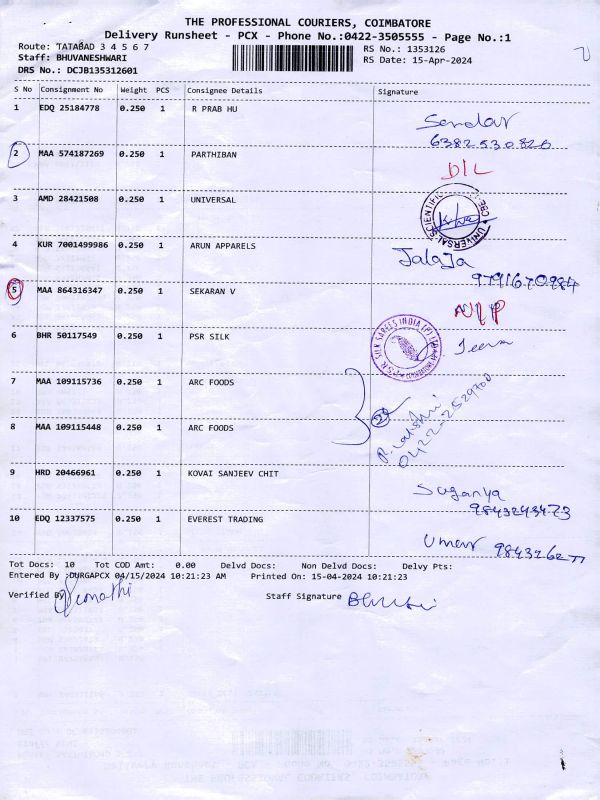 THE PROFESSIONAL COURIERS, COIMBATORE
Delivery Runsheet - PCX - Phone No.:0422-3505555 - Page No.:1
Route: TATABAD 3 4 5 6 7
RS No.: 1353126
Staff: BHUVANESHWARI
RS Date: 15-Apr-2024
DRS No.: DCJB135312601
S No Consignment No Weight PCS Consignee Details Signature
1 EDQ 25184778 0.250 1 R PRAB HU
6382530820
2 MAA 574187269 0.250 1 PARTHIBAN
D/L
3 AMD 28421508 0.250 1 UNIVERSAL
UNIVERSAL SCIENTIFIC CBE
4 KUR 7001499986 0.250 1 ARUN APPARELS
Jalaja
9791670984
5 MAA 864316347 0.250 1 SEKARAN V
N/P
6 BHR 50117549 0.250 1 PSR SILK
P.S.R. SILK SAREES INDIA (P) LTD
Jeeva
7 MAA 109115736 0.250 1 ARC FOODS
8 MAA 109115448 0.250 1 ARC FOODS
0422-2529700
9 HRD 20466961 0.250 1 KOVAI SANJEEV CHIT
Suganya
9843243473
10 EDQ 12337575 0.250 1 EVEREST TRADING
Tot Docs: 10 Tot COD Amt: 0.00 Delvd Docs: Non Delvd Docs: Delvy Pts:
Entered By :DURGAPCX 04/15/2024 10:21:23 AM Printed On: 15-04-2024 10:21:23
Verified By
Staff Signature